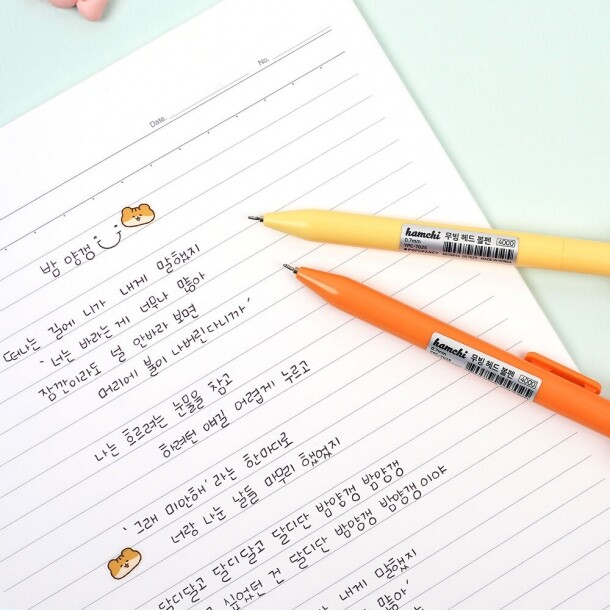 No.
Date.
밤 양갱
떠나는 길에 니가 내게 말했지
' 너는 바라는 게 너무나 많아
잠깐이라도 널 안바라 보면
머리에 불이 나버린다니까'
나는 흐르려는 눈물을 참고
하려던 얘길 어렵게 누르고
' 그래 미안해' 라는 한마디로
너랑 나눈 날들 마무리 했었지
달디달고 달디달고 달디단 밤양갱 밤양갱
싶었던 건 달디단 밤양갱 밤양갱 이야
내게 말했지
많아'
hamchi 무빙 헤드 볼펜 4000
0.7mm
hamchi 무빙 헤드 볼펜 4000
0.7mm